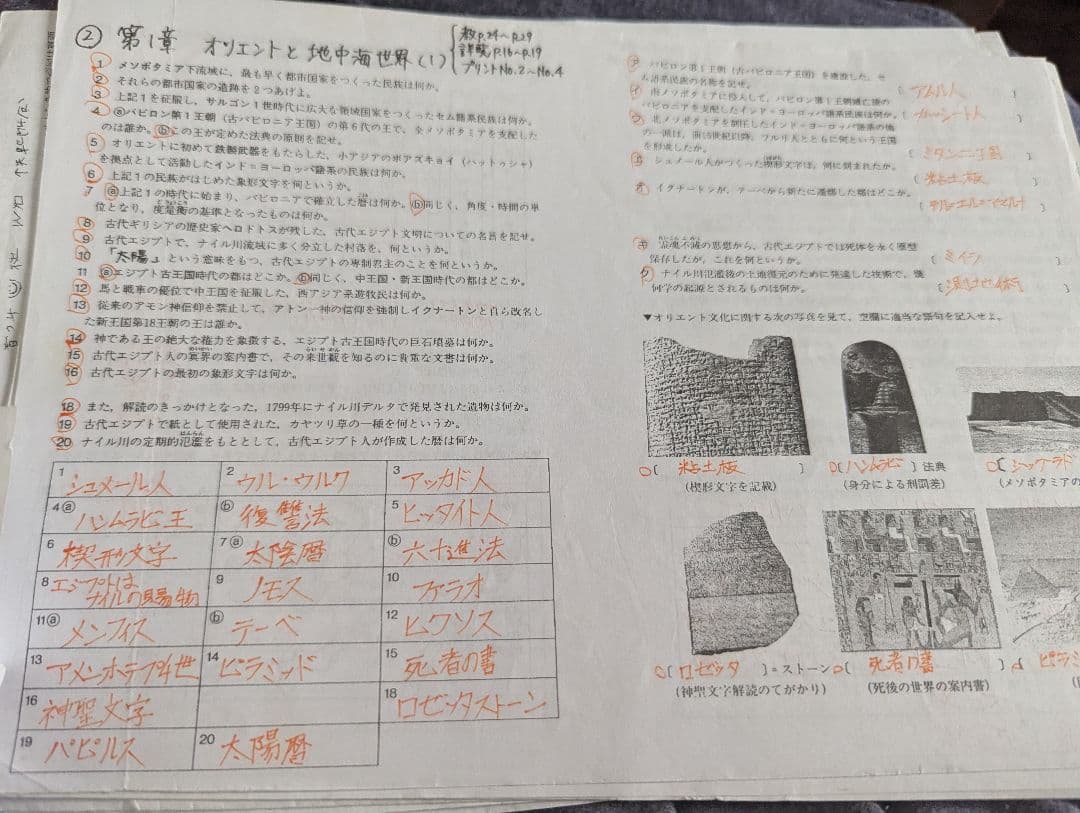 ② 第1章 オリエントと地中海世界(1)
教p.24～p.29
詳説p.16～p.19
プリントNo.2～No.4
1 メソポタミア下流域に、最も早く都市国家をつくった民族は何か。
2 それらの都市国家の遺跡を2つあげよ。
3 上記1を征服し、サルゴン1世時代に広大な領域国家をつくったセム語系民族は何か。
4 ⓐバビロン第1王朝（古バビロニア王国）の第6代の王で、全メソポタミアを支配した
のは誰か。ⓑこの王が定めた法典の原則を記せ。
5 オリエントに初めて鉄製武器をもたらした、小アジアのボアズキョイ（ハットゥシャ）
を拠点として活動したインド＝ヨーロッパ語系の民族は何か。
6 上記1の民族がはじめた象形文字を何というか。
7 ⓐ上記1の時代に始まり、バビロニアで確立した暦は何か。ⓑ同じく、角度・時間の単
位となり、度量衡の基準となったものは何か。
8 古代ギリシアの歴史家ヘロドトスが残した、古代エジプト文明についての名言を記せ。
9 古代エジプトで、ナイル川流域に多く分立した村落を、何というか。
10 「太陽」という意味をもつ、古代エジプトの専制君主のことを何というか。
11 ⓐエジプト古王国時代の都はどこか。ⓑ同じく、中王国・新王国時代の都はどこか。
12 馬と戦車の優位で中王国を征服した、西アジア系遊牧民は何か。
13 従来のアモン神信仰を禁止して、アトン一神の信仰を強制しイクナートンと自ら改名し
た新王国第18王朝の王は誰か。
14 神である王の絶大な権力を象徴する、エジプト古王国時代の巨石墳墓は何か。
15 古代エジプト人の冥界の案内書で、その来世観を知るのに貴重な文書は何か。
16 古代エジプトの最初の象形文字は何か。
18 また、解読のきっかけとなった、1799年にナイル川デルタで発見された遺物は何か。
19 古代エジプトで紙として使用された、カヤツリ草の一種を何というか。
20 ナイル川の定期的氾濫をもととして、古代エジプト人が作成した暦は何か。
1 シュメール人 2 ウル・ウルク 3 アッカド人
4ⓐ ハンムラビ王 ⓑ 復讐法 5 ヒッタイト人
6 楔形文字 7ⓐ 太陰暦 ⓑ 六十進法
8 エジプトは
ナイルの賜物 9 ノモス 10 ファラオ
11ⓐ メンフィス ⓑ テーベ 12 ヒクソス
13 アメンホテプ4世 14 ピラミッド 15 死者の書
16 神聖文字 18 ロゼッタストーン
19 パピルス 20 太陽暦
ア バビロン第1王朝（古バビロニア王国）を建設した、セ
ム語系民族の名称を記せ。 アムル人
イ 南メソポタミアに侵入して、バビロン第1王朝滅亡後の
バビロニアを支配したインド＝ヨーロッパ語系民族は何か。 カッシート人
ウ 北メソポタミアを制圧したインド＝ヨーロッパ語系の民族
の一派は、前16世紀以降、フルリ人とともに何という王国
を形成したか。 ミタンニ王国
エ シュメール人がつくった楔形文字は、何に刻まれたか。
粘土板
オ イクナートンが、テーベから新たに遷都した都はどこか。
テル＝エル＝アマルナ
キ 霊魂不滅の思想から、古代エジプトでは死体を永く原型
保存したが、これを何というか。 ミイラ
ク ナイル川氾濫後の土地復元のために発達した技術で、幾
何学の起源とされるものは何か。 測地術
▼オリエント文化に関する次の写真を見て、空欄に適当な語句を記入せよ。
〔粘土板〕 〔ハンムラビ〕法典 〔ジッグラト
(楔形文字を記載) (身分による刑罰差) (メソポタミアの
〔ロゼッタ〕＝ストーン 〔死者の書〕 〔ピラミ
(神聖文字解読のてがかり) (死後の世界の案内書)